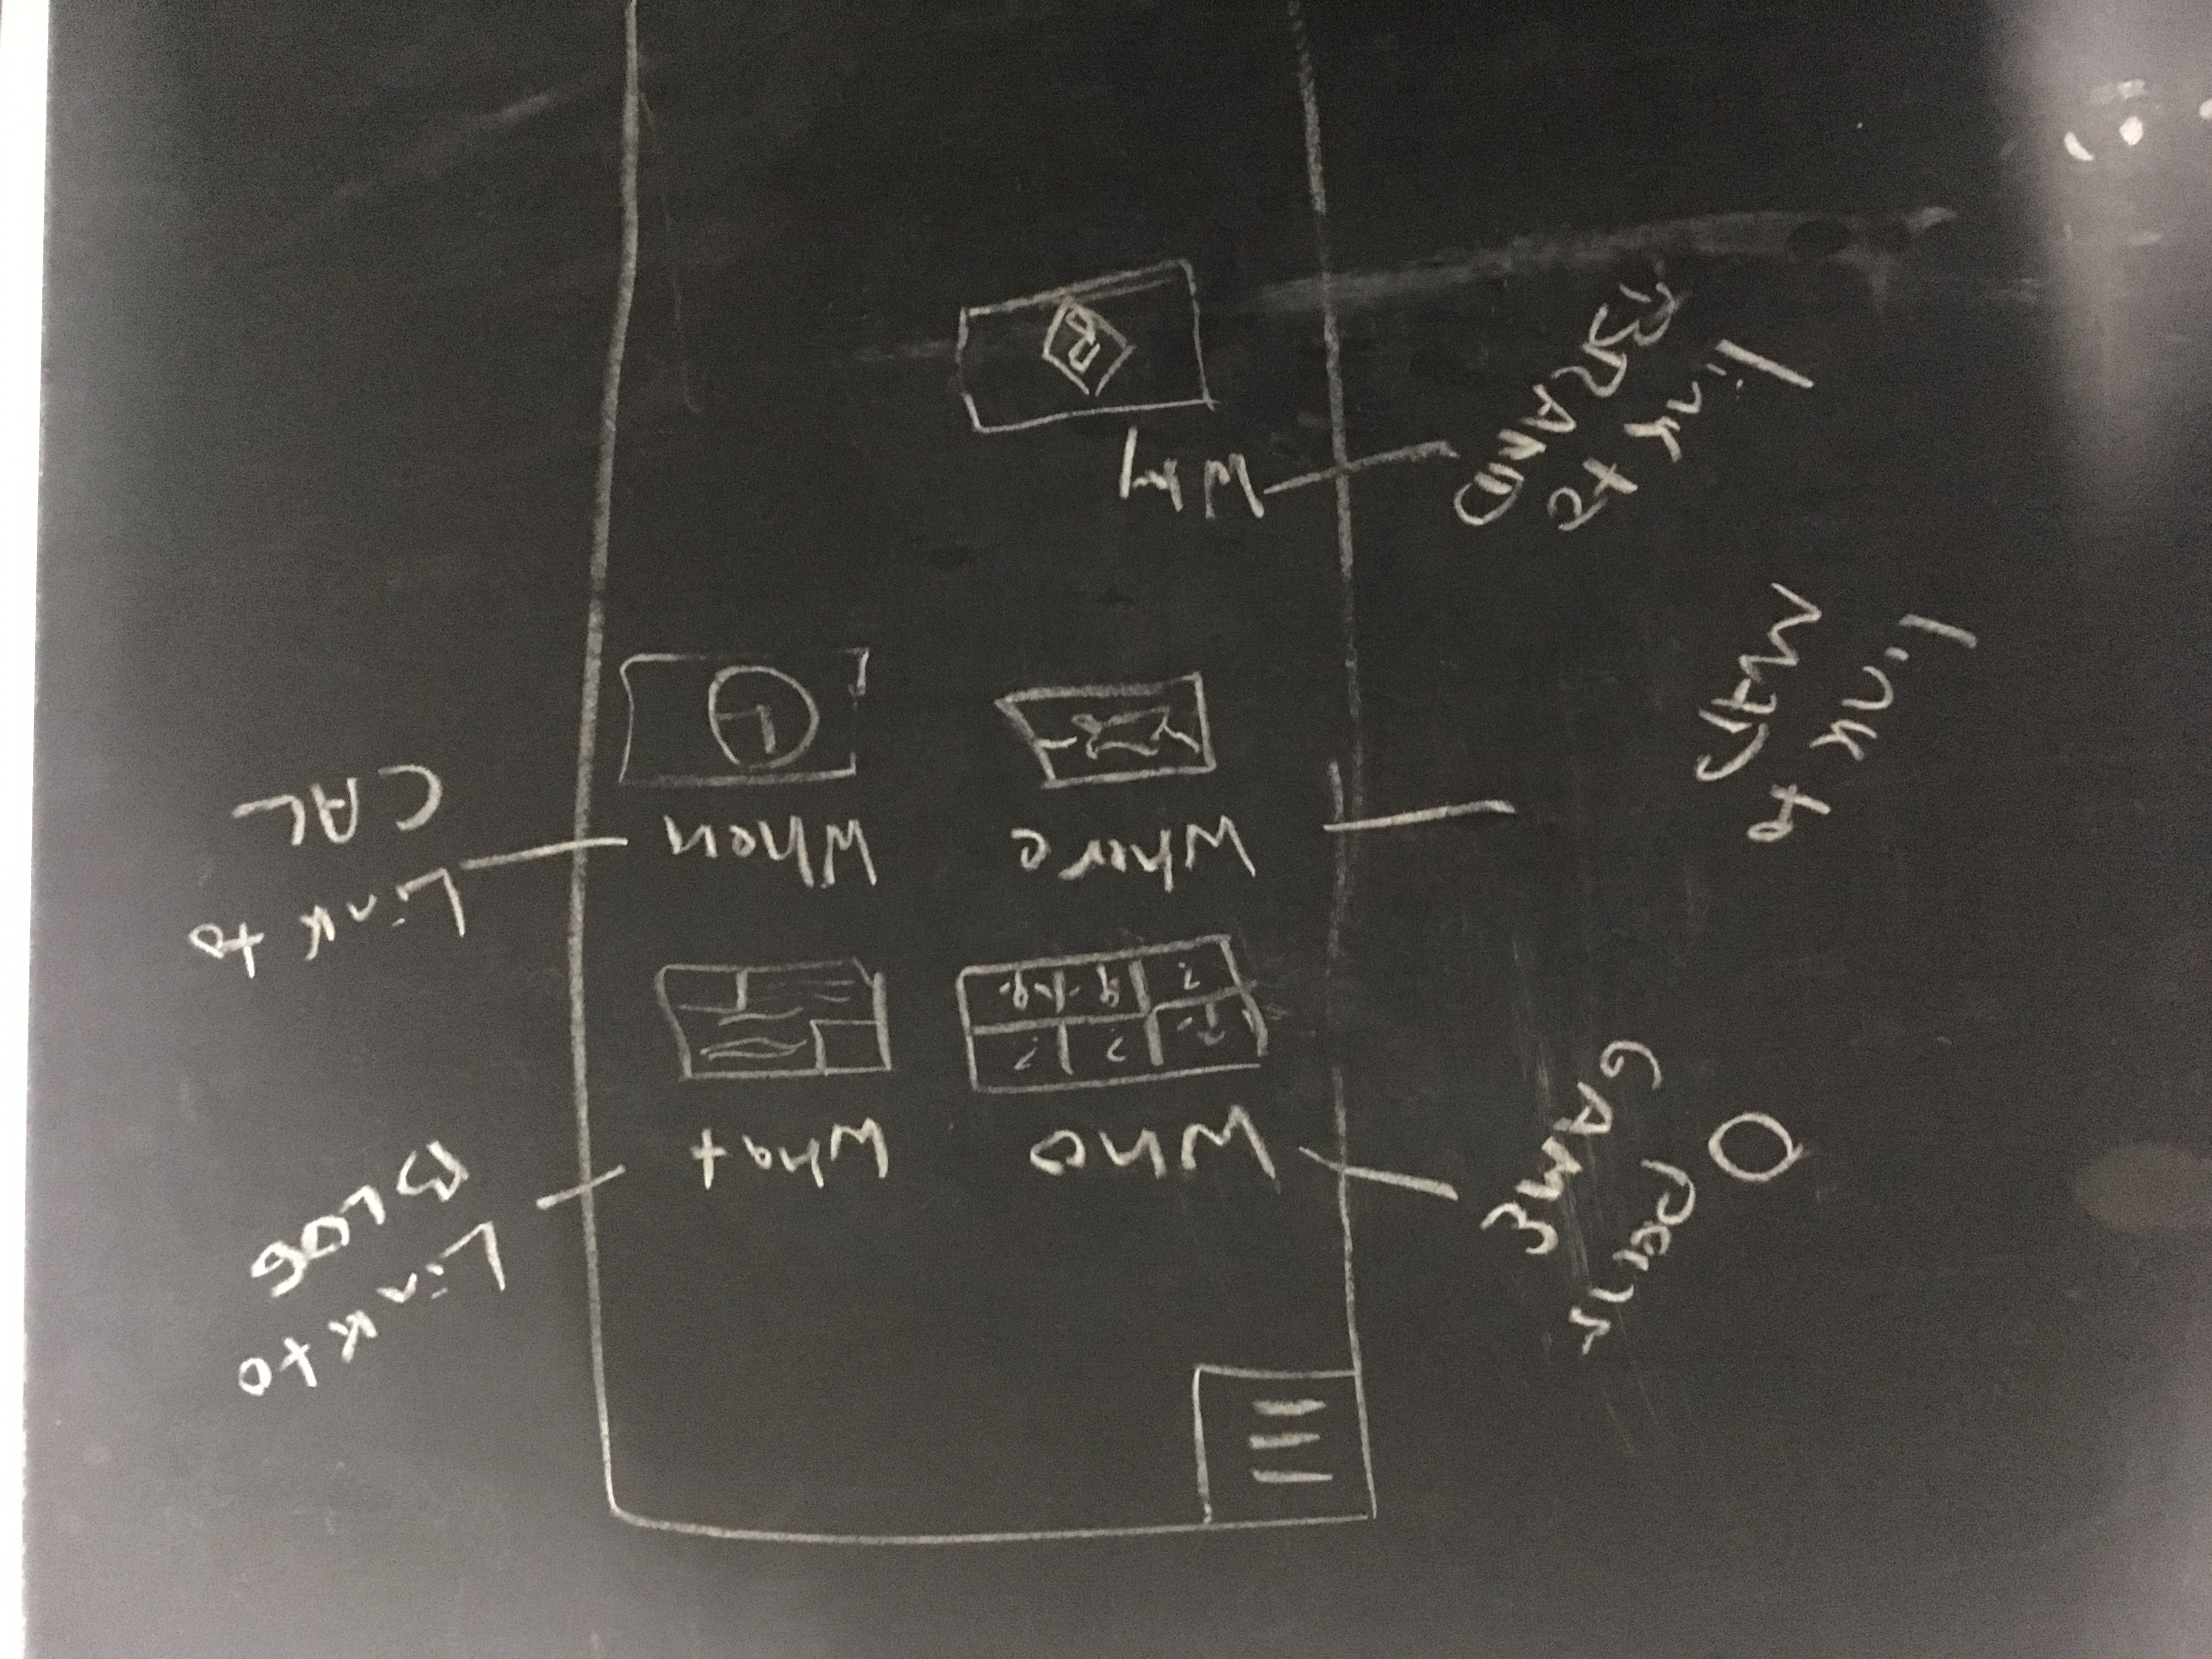 Opens
GAME
Who
What
Link to
BLOG
? ?
?
Link to
MAP
Where
When
Link to
CAL
Link to
BRAND
Why